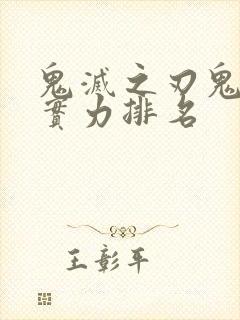 鬼滅之刃鬼
實力排名
王彰平